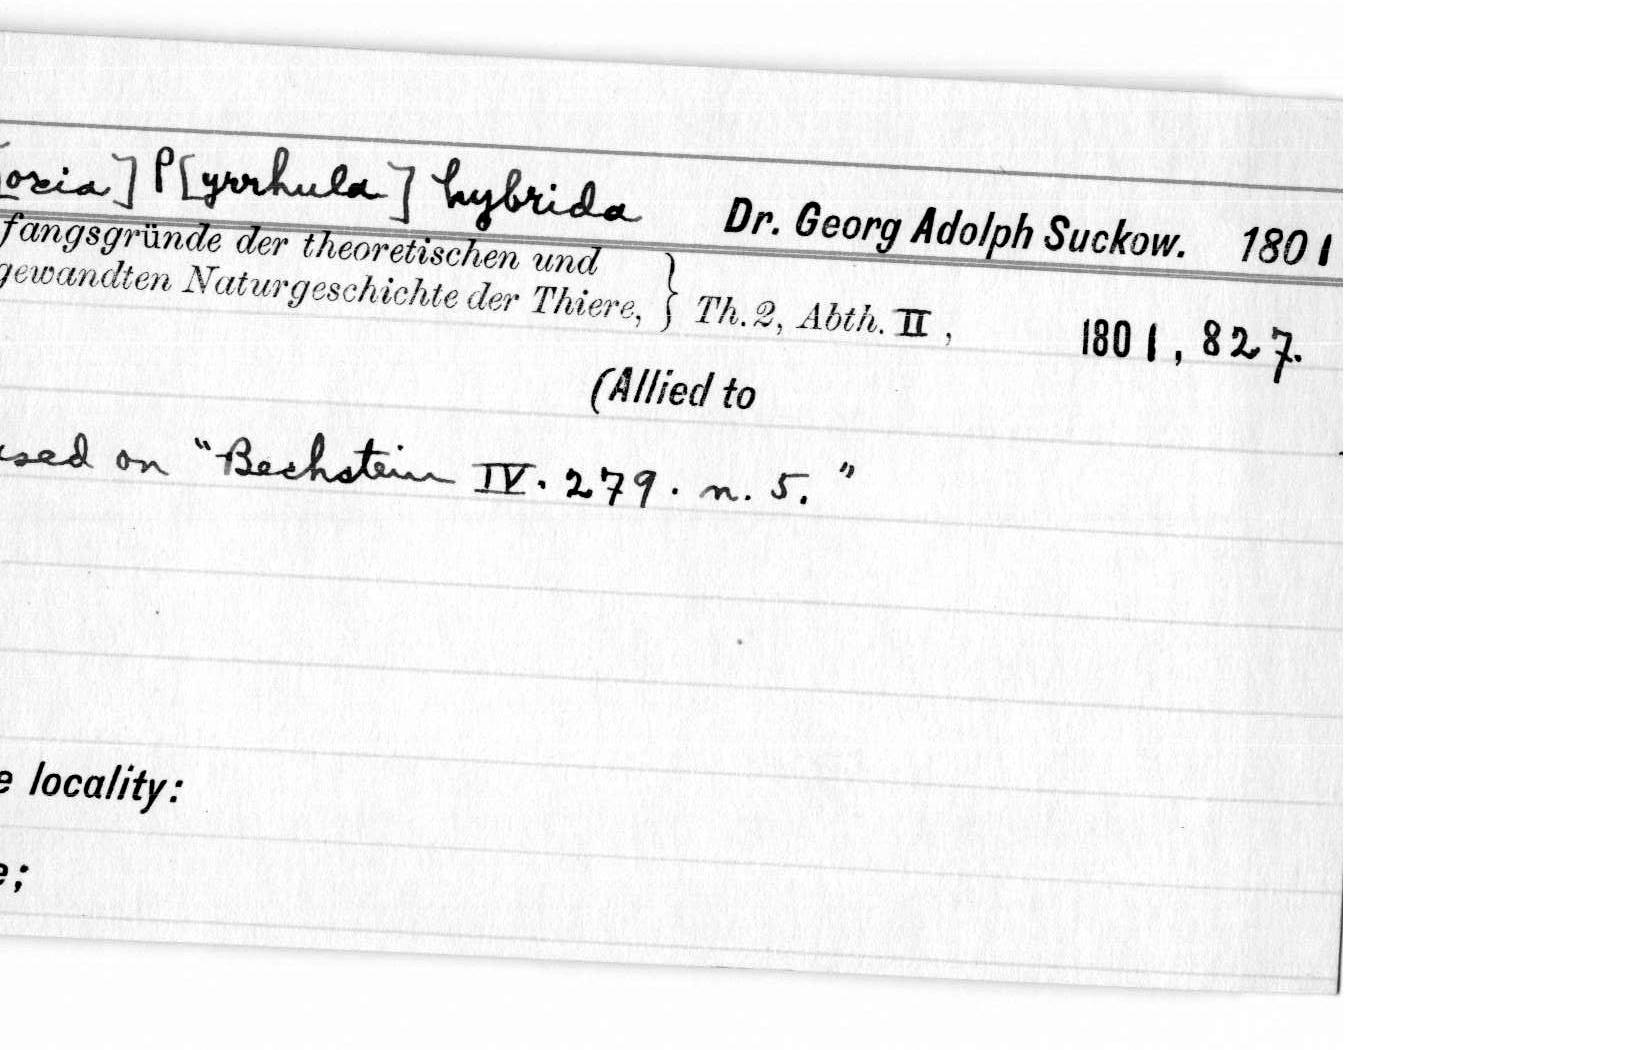 [oxia] P[yrrhula] hybrida Dr. Georg Adolph Suckow. 1801
fangsgründe der theoretischen und
gewandten Naturgeschichte der Thiere, } Th. 2, Abth. II, 1801, 827.
(Allied to
ased on "Bechstein IV. 279. n. 5."
e locality:
e;